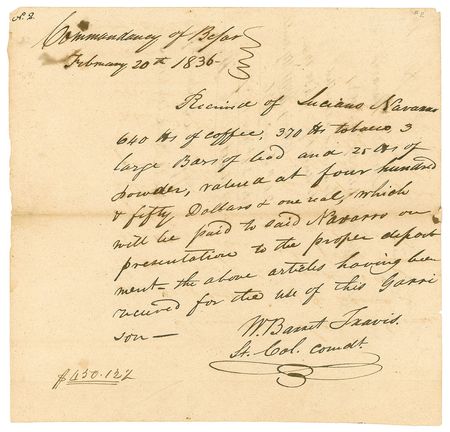 No. 2
Commandancy of Bejar
February 20th 1836
Received of Luciano Navarro
640 lbs of coffee, 370 lbs tobacco, 3
large Bars of lead and 25 lbs of
powder, valued at four hundred
& fifty Dollars & one real, which
will be paid to said Navarro on
presentation to the proper depart
ment - the above articles having been
received for the use of this Garri
son -
W. Barret Travis.
Lt. Col. comdt.
$450.12½